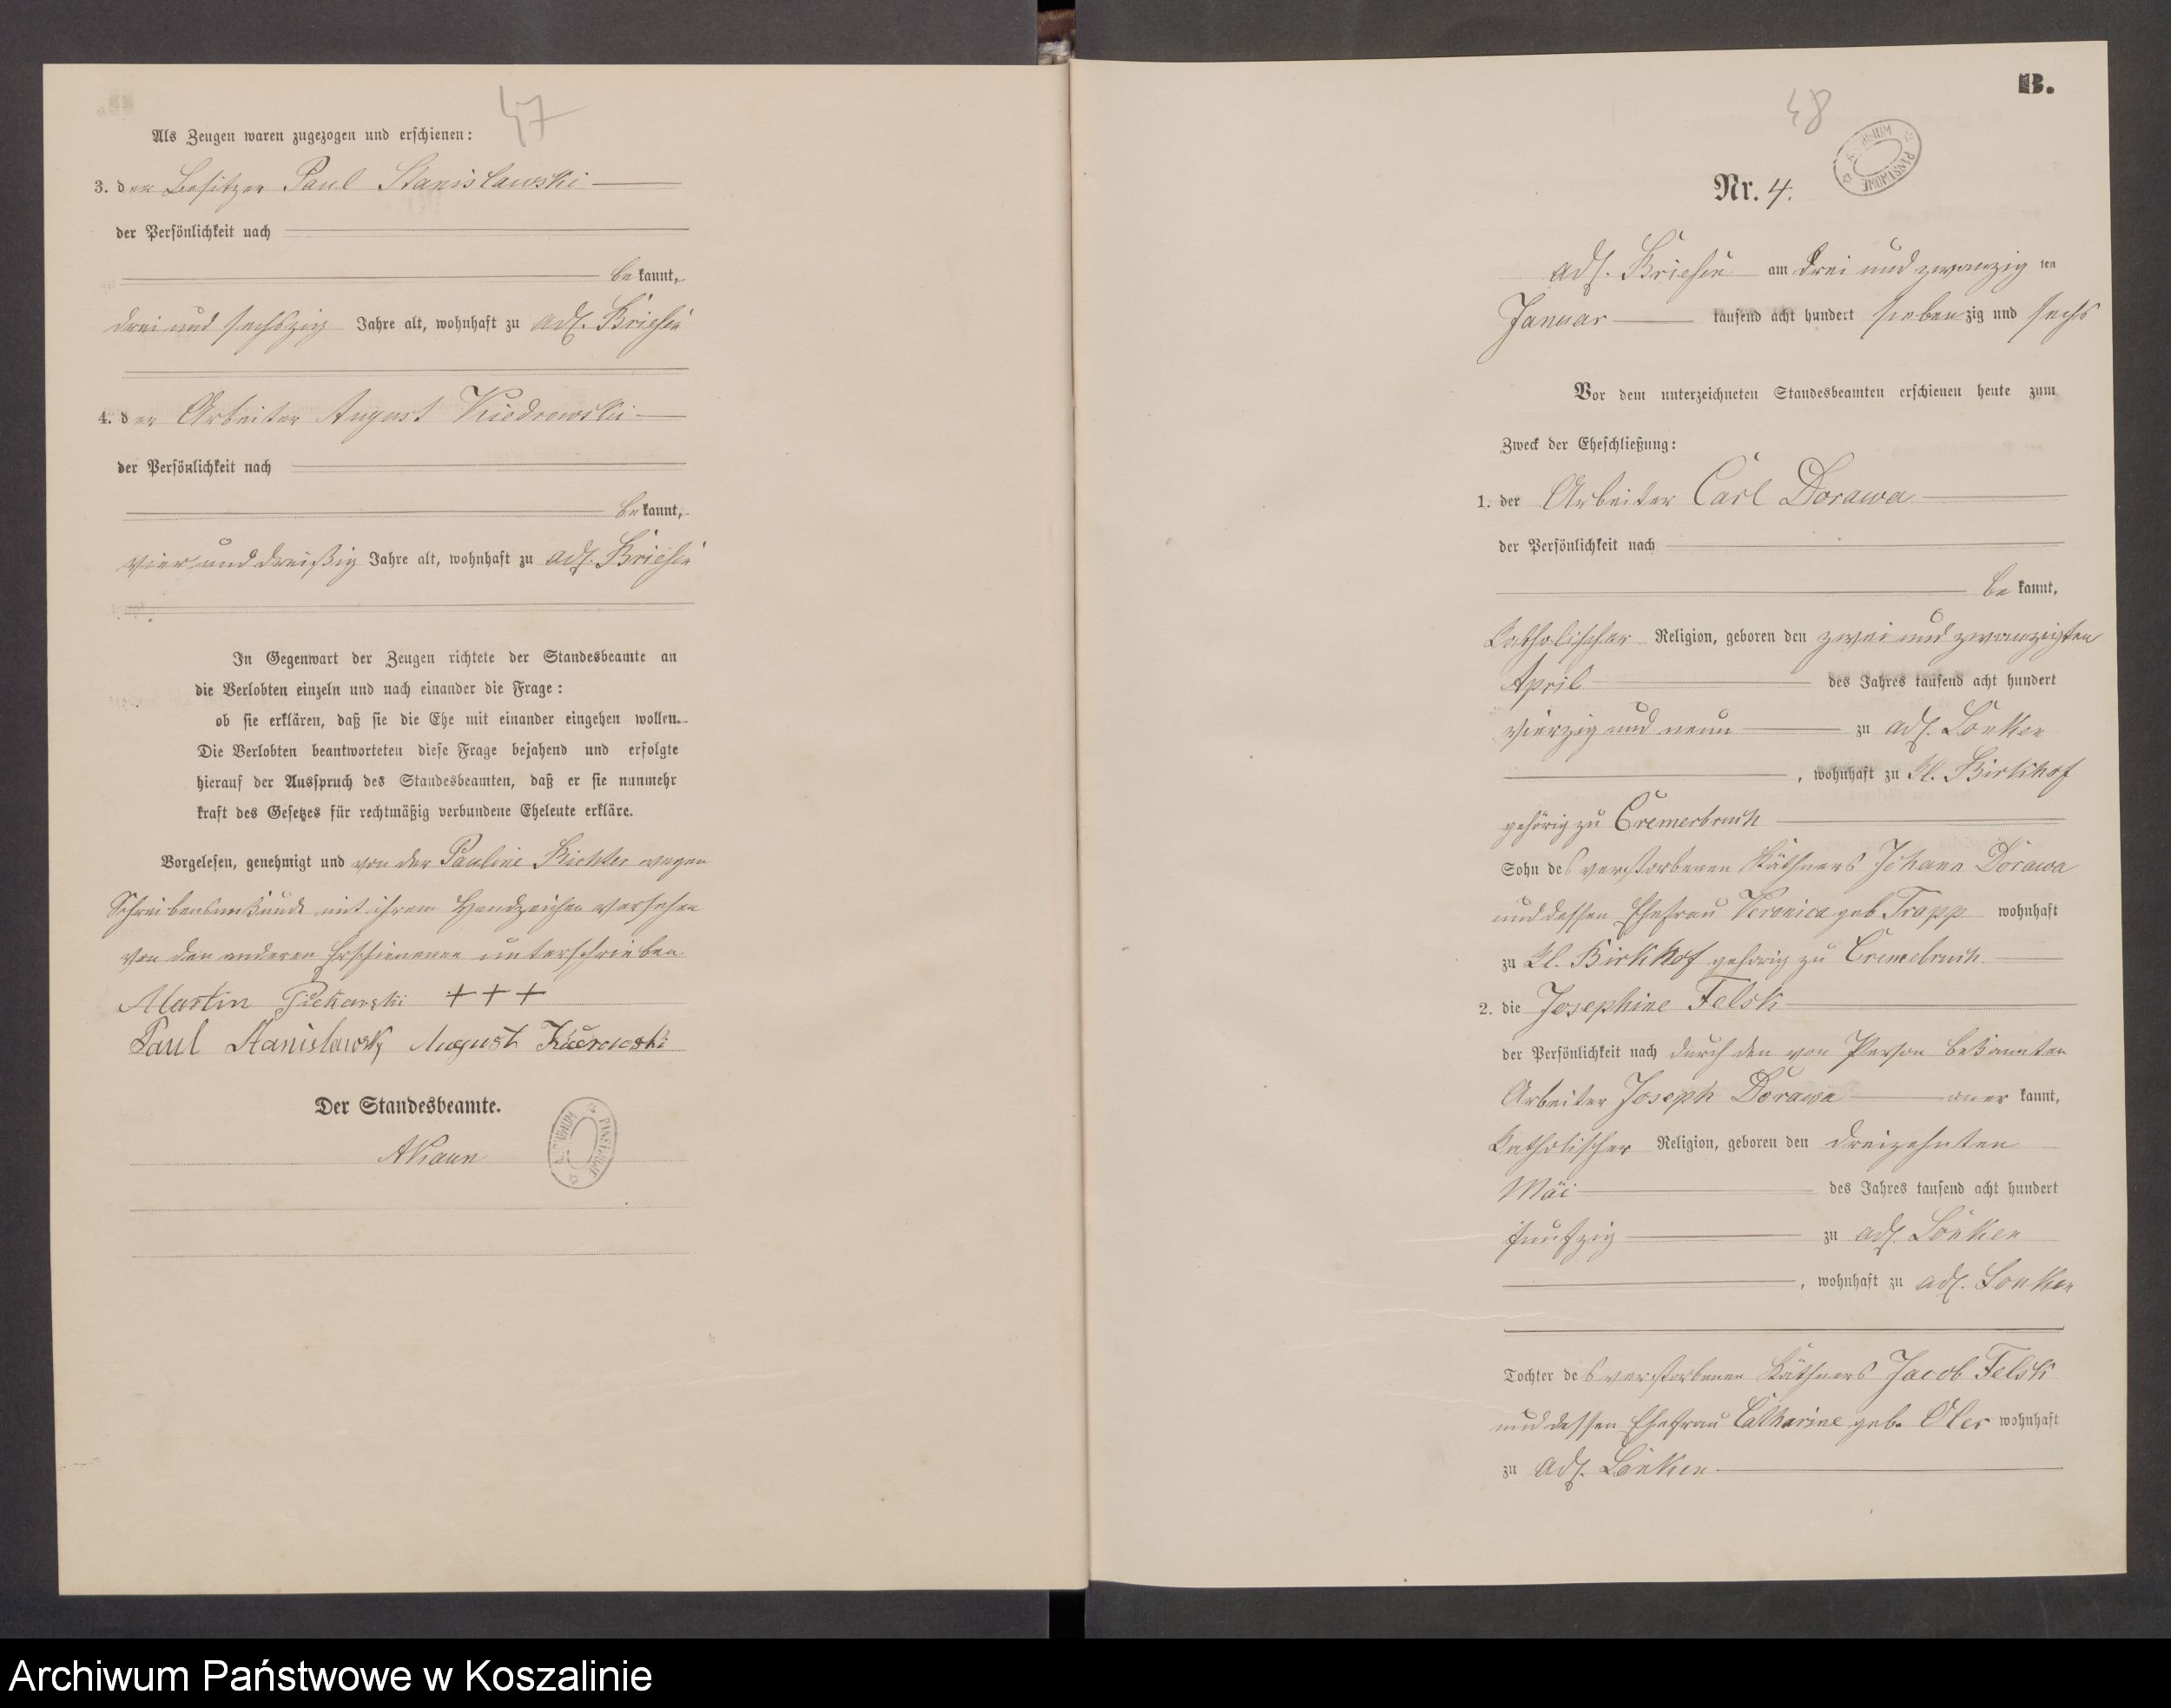 47
Als Zeugen waren zugezogen und erschienen:
3. der Besitzer Paul Stanislawski
der Persönlichkeit nach
be kannt,
drei und sechszig Jahre alt, wohnhaft zu adl. Briesen
4. der Arbeiter August Kiedrowski
der Persönlichkeit nach
be kannt,
vier und dreißig Jahre alt, wohnhaft zu adl. Briesen
In Gegenwart der Zeugen richtete der Standesbeamte an
die Verlobten einzeln und nach einander die Frage:
ob sie erklären, daß sie die Ehe mit einander eingehen wollen.
Die Verlobten beantworteten diese Frage bejahend und erfolgte
hierauf der Ausspruch des Standesbeamten, daß er sie nunmehr
kraft des Gesetzes für rechtmäßig verbundene Eheleute erkläre.
Vorgelesen, genehmigt und von der Pauline Richter wegen
Schreibensunkunde mit ihrem Handzeichen versehen
von den anderen Erschienenen unterschrieben.
Martin Piekarski +++
Paul Stanislawsky August
Der Standesbeamte.
ARCHIWUM PAŃSTWOWE
B.
48
ARCHIWUM PAŃSTWOWE
Nr. 4.
adl. Briesen am drei und zwanzig ten
Januar tausend acht hundert sieben zig und sechs
Vor dem unterzeichneten Standesbeamten erschienen heute zum
Zweck der Eheschließung:
1. der Arbeiter Carl Dorawa
der Persönlichkeit nach
be kannt,
Katholischer Religion, geboren den zwei und zwanzigsten
April des Jahres tausend acht hundert
vierzig und neun zu adl. Lonken
, wohnhaft zu Kl. Birkhof
gehörig zu Cremerbruch
Sohn des verstorbenen Käthners Johann Dorawa
und dessen Ehefrau Veronica geb Trapp wohnhaft
zu Kl. Birkhof gehörig zu Cremebruch
2. die Josephine Felsk
der Persönlichkeit nach durch den von Person bekannten
Arbeiter Joseph Dorawa aner kannt,
Katholischer Religion, geboren den dreizehnten
Mai des Jahres tausend acht hundert
funfzig zu adl. Lonken
, wohnhaft zu adl. Lonken
Tochter des verstorbenen Käthners Jacob Felsk
und dessen Ehefrau Catharine geb. wohnhaft
zu adl. Lonken
Archiwum Państwowe w Koszalinie